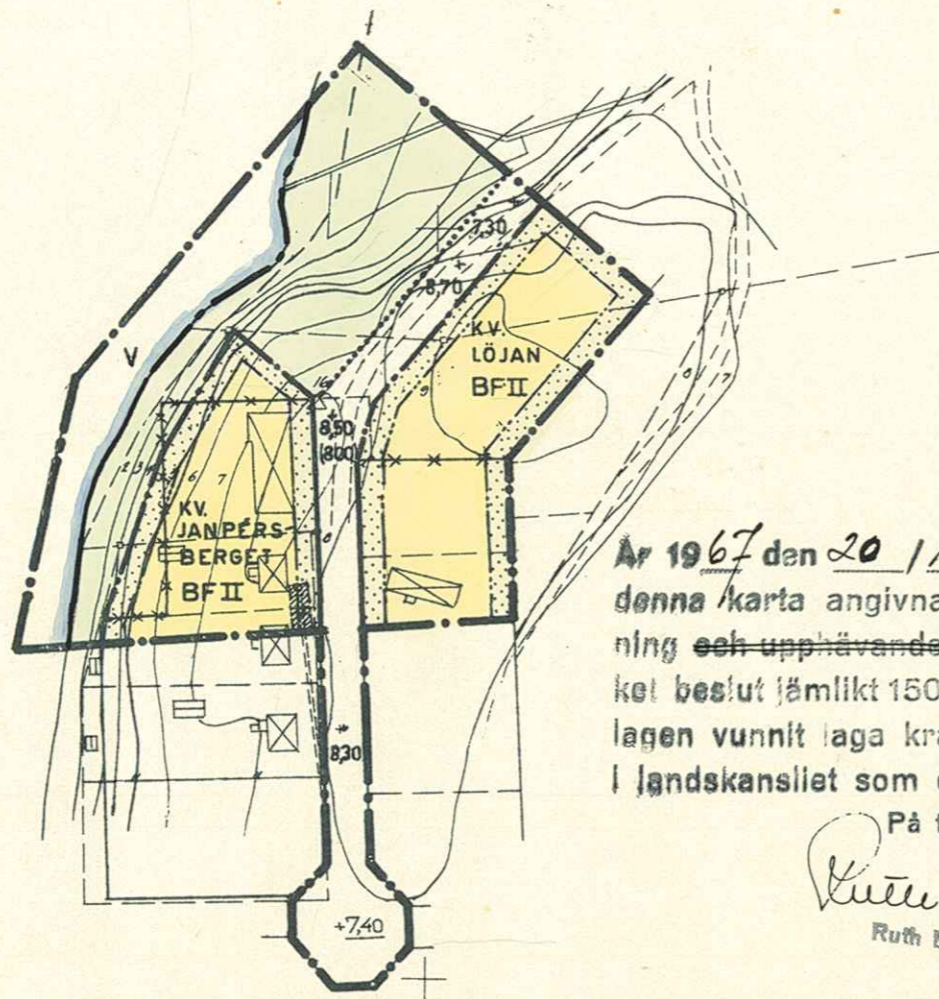 7,30
8,70
KV.
LÖJAN
BFII
V
9
16
8,50
(8,00)
8 7
1 2 3 4 5 6 7
KV.
JANPERS-
BERGET
BFII
8
År 1967 den 20 /
denna karta angivna
ning och upphävande
ket beslut jämlikt 150
lagen vunnit laga kra
i landskansliet som
På
8,30
+7,40
Ruth